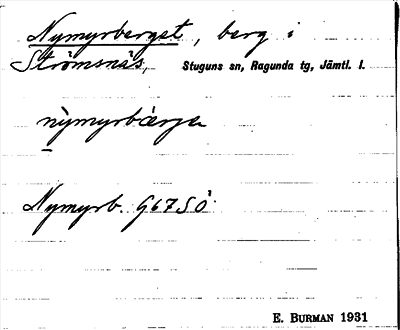 Nymyrberget, berg i
Strömsnäs, Stuguns sn, Ragunda tg, Jämtl. l.
nỳmyrbàrje
Nymyrb. G67SÖ
E. BURMAN 1931